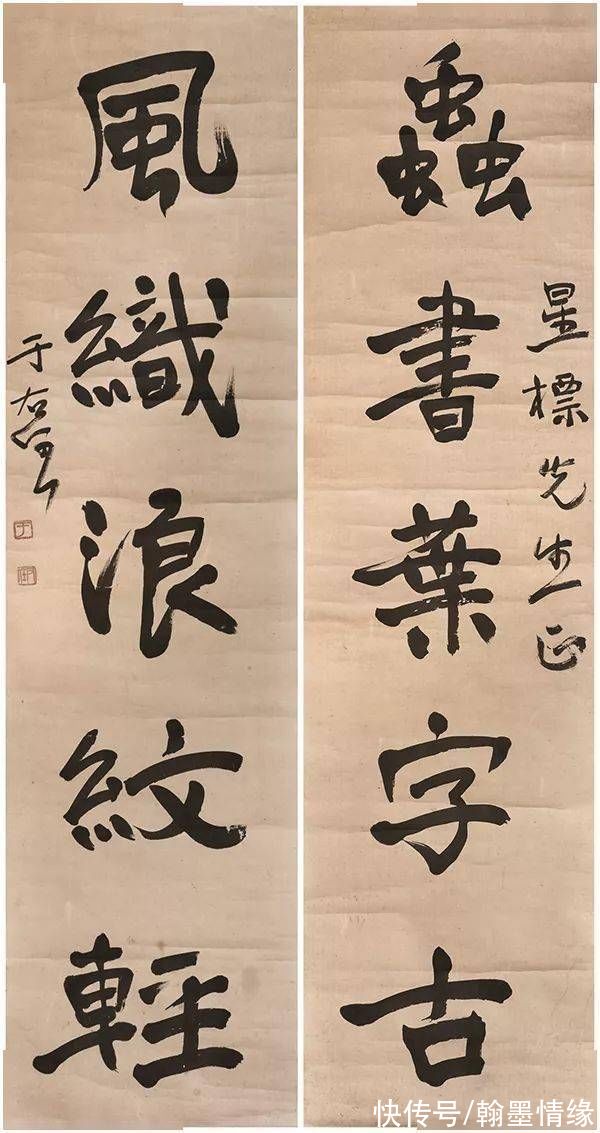 蟲書葉字古
星標先生正
風織浪紋輕
于右任
快传号/翰墨情缘